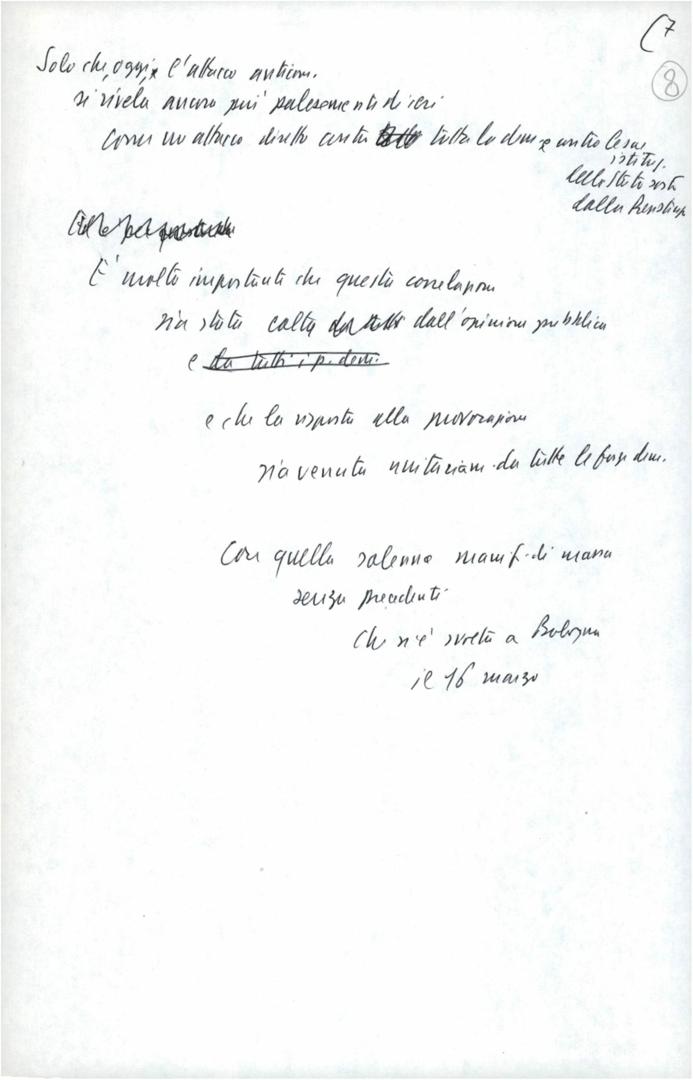 (7
8
Solo che, oggi, l'attacco anticom.
si rivela ancora più palesemente di ieri
come un attacco diretto contro tutta la dem. e contro le sue
istituz.
dello Stato sorto
dalla Resistenza
È molto importante che questa correlazione
sia stata colta dall'opinione pubblica
e da tutti i p. dem.
e che la risposta alla provocazione
sia venuta unitariam. da tutte le forze dem.
Con quella solenne manif. di massa
senza precedenti
che si è svolta a Bologna
il 16 marzo